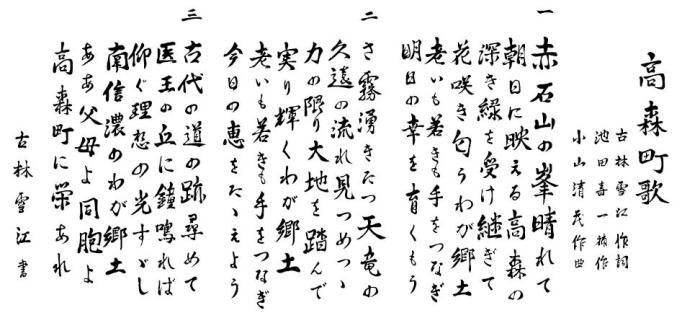 高森町歌
古林雪江作詞
池田喜一補作
小山清茂作曲
一 赤石山の峯晴れて
朝日に映える高森の
深き緑を受け継ぎて
花咲き匂うわが郷土
老いも若きも手をつなぎ
明日の幸を育くもう
二 さ霧湧きたつ天竜の
久遠の流れ見つめつゝ
力の限り大地を踏んで
実り輝くわが郷土
老いも若きも手をつなぎ
今日の恵をたゝえよう
三 古代の道の跡尋めて
医王の丘に鐘鳴れば
仰ぐ理想の光すゞし
南信濃のわが郷土
ああ父母よ同胞よ
高森町に栄あれ
古林雪江書